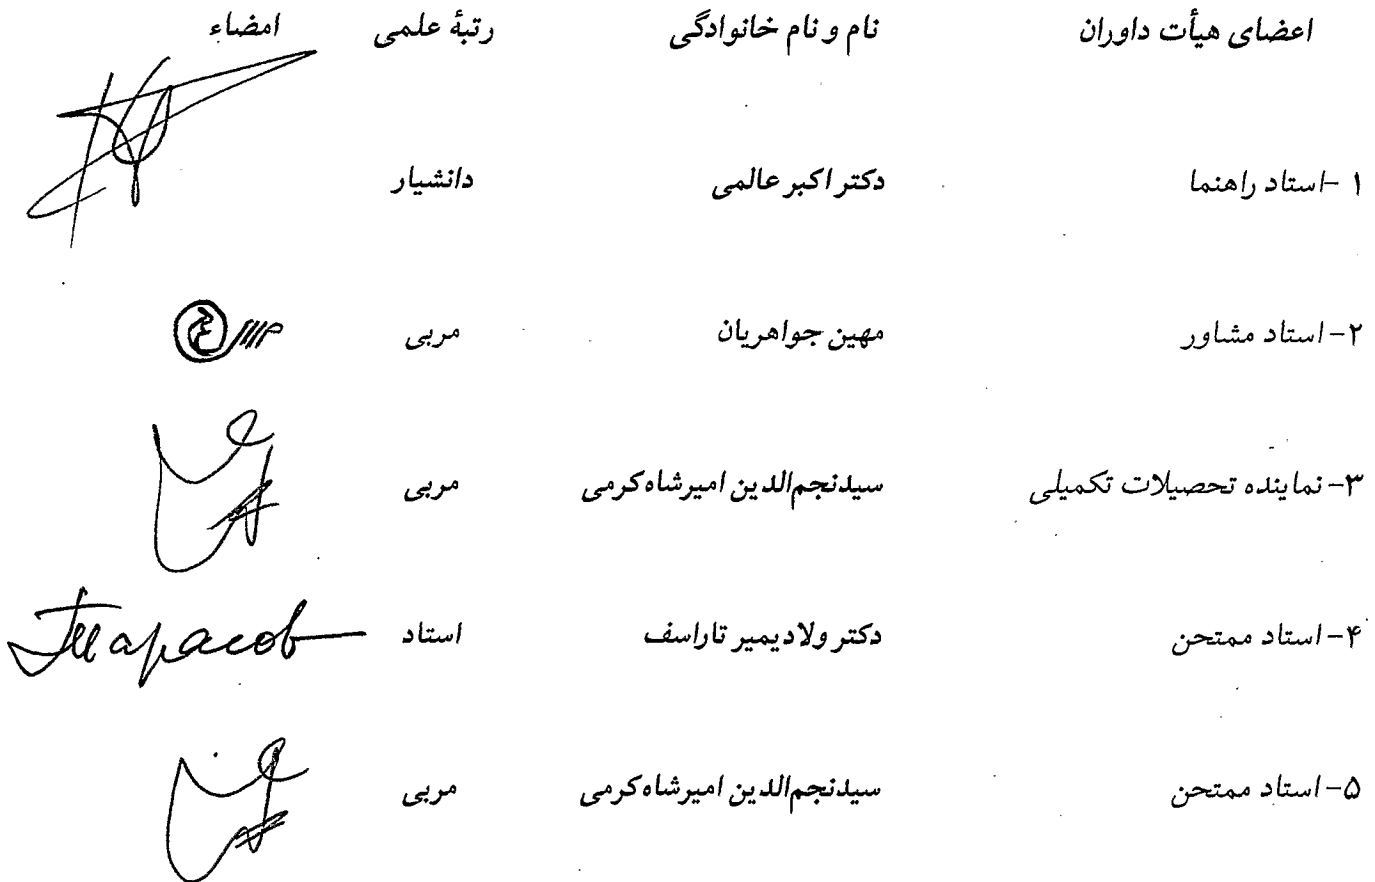 اعضای هیأت داوران نام و نام خانوادگی رتبۀ علمی امضاء
۱ -استاد راهنما دکتر اکبر عالمی دانشیار
۲- استاد مشاور مهین جواهریان مربی
۳- نماینده تحصیلات تکمیلی سیدنجم‌الدین امیرشاه‌کرمی مربی
۴- استاد ممتحن دکتر ولادیمیر تاراسف استاد Тарасов
۵- استاد ممتحن سیدنجم‌الدین امیرشاه‌کرمی مربی